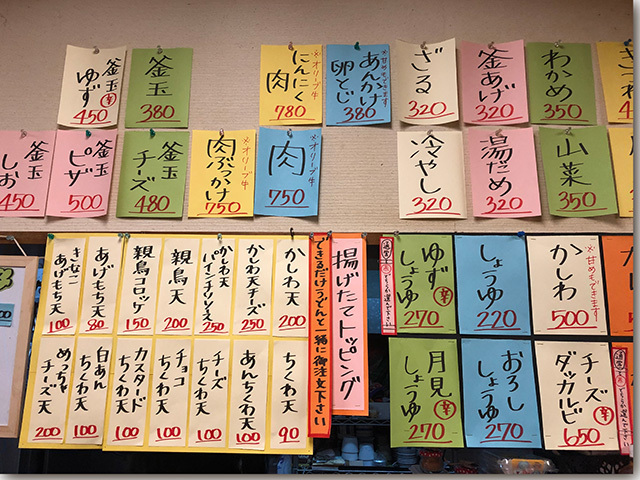 釜玉
ゆず
辛
450
釜玉
380
※オリーブ牛
にんにく
肉
780
※甘めもできます
あんかけ
卵とじ
380
ざる
320
釜あげ
320
わかめ
350
釜玉
しお
450
釜玉
ピザ
500
釜玉
チーズ
480
※オリーブ牛
肉ぶっかけ
750
※オリーブ牛
肉
750
冷やし
320
湯だめ
320
山菜
350
きなこ
あげもち天
100
あげもち天
80
親鳥コロッケ
150
親鳥天
200
かしわ天
パインチリソース
250
かしわ天チーズ
250
かしわ天
200
めっちゃ
チーズ天
200
白あん
ちくわ天
100
カスタード
ちくわ天
100
チョコ
ちくわ天
100
チーズ
ちくわ天
100
あんちくわ天
100
ちくわ天
90
できるだけうどんと一緒に御注文下さい
揚げたてトッピング
ゆず
しょうゆ
辛
270
しょうゆ
220
※甘めもできます!
かしわ
500
月見
しょうゆ
辛
270
おろし
しょうゆ
270
チーズ
ダッカルビ
辛
650